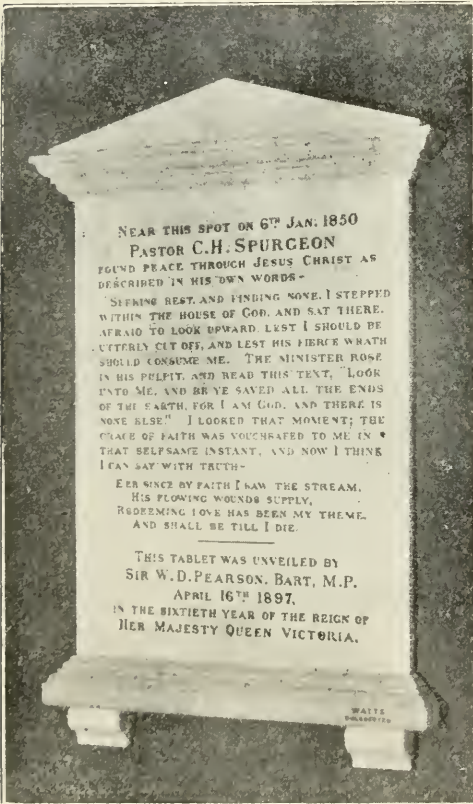 NEAR THIS SPOT ON 6TH JAN: 1850
PASTOR C.H. SPURGEON
FOUND PEACE THROUGH JESUS CHRIST AS
DESCRIBED IN HIS OWN WORDS-
"SEEKING REST, AND FINDING NONE, I STEPPED
WITHIN THE HOUSE OF GOD, AND SAT THERE,
AFRAID TO LOOK UPWARD, LEST I SHOULD BE
UTTERLY CUT OFF, AND LEST HIS FIERCE WRATH
SHOULD CONSUME ME. THE MINISTER ROSE
IN HIS PULPIT, AND READ THIS TEXT, "LOOK
UNTO ME, AND BE YE SAVED ALL THE ENDS
OF THE EARTH, FOR I AM GOD, AND THERE IS
NONE ELSE" I LOOKED THAT MOMENT; THE
GRACE OF FAITH WAS VOUCHSAFED TO ME IN
THAT SELFSAME INSTANT, AND NOW I THINK
I CAN SAY WITH TRUTH-
EER SINCE BY FAITH I SAW THE STREAM,
HIS FLOWING WOUNDS SUPPLY,
REDEEMING LOVE HAS BEEN MY THEME,
AND SHALL BE TILL I DIE.
THIS TABLET WAS UNVEILED BY
SIR W.D. PEARSON, BART, M.P.
APRIL 16TH 1897,
IN THE SIXTIETH YEAR OF THE REIGN OF
HER MAJESTY QUEEN VICTORIA.
WATTS
COLCHESTER